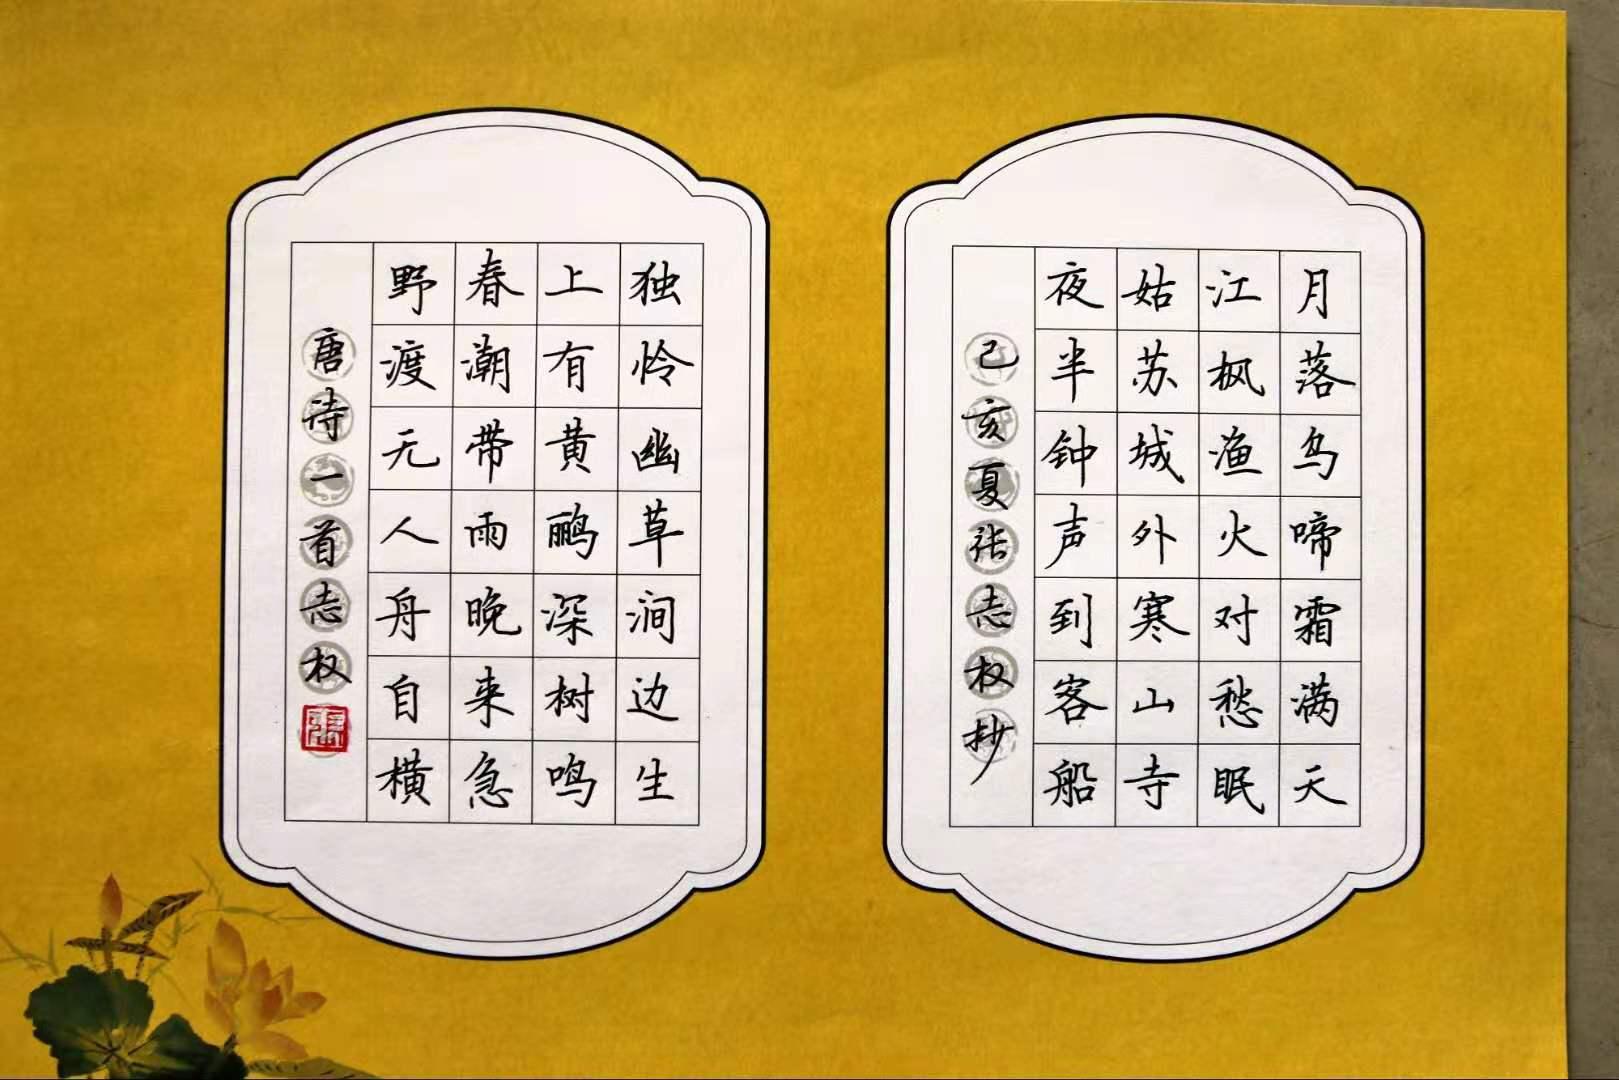 月落乌啼霜满天
江枫渔火对愁眠
姑苏城外寒山寺
夜半钟声到客船
己亥夏张志权抄
独怜幽草涧边生
上有黄鹂深树鸣
春潮带雨晚来急
野渡无人舟自横
唐诗一首志权